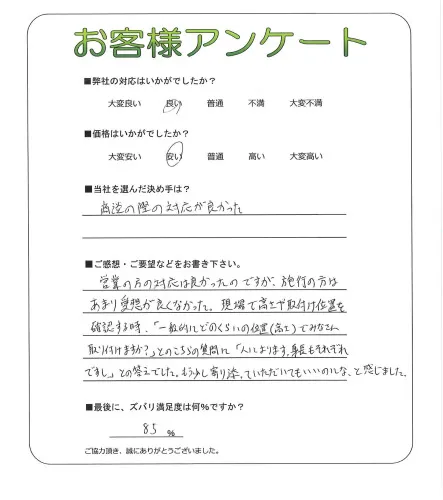 お客様アンケート
■弊社の対応はいかがでしたか？
大変良い 良い 普通 不満 大変不満
■価格はいかがでしたか？
大変安い 安い 普通 高い 大変高い
■当社を選んだ決め手は？
商談の際の対応が良かった
■ご感想・ご要望などをお書き下さい。
営業の方の対応は良かったのですが、施行の方は
あまり愛想が良くなかった。現場で高さや取付け位置を
確認する時、「一般的にどのくらいの位置(高さ)でみなさん
取り付けますか？」とのこちらの質問に「人によります。身長もそれぞれ
ですし」との答えでした。もう少し寄り添っていただいてもいいのにな、と感じました。
■最後に、ズバリ満足度は何%ですか？
85 %
ご協力頂き、誠にありがとうございました。